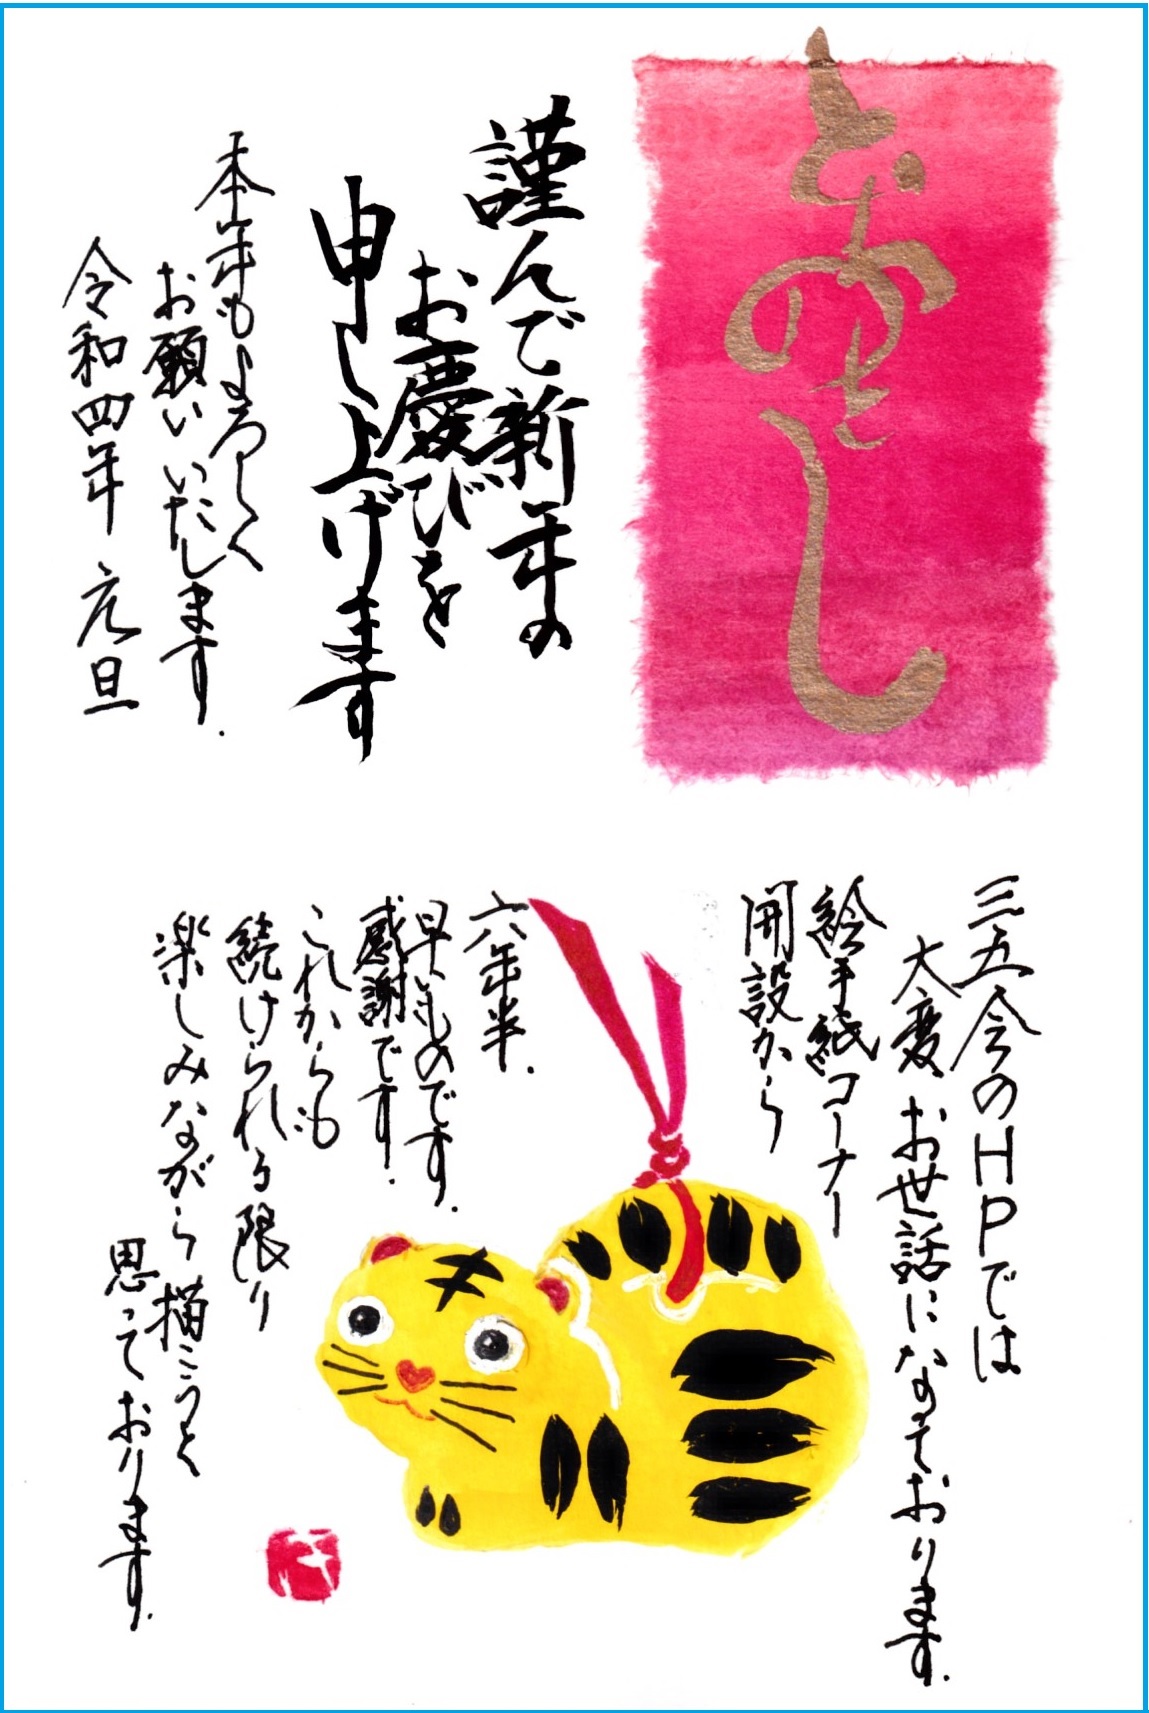 とらのとし
謹んで新年の
お慶びを
申し上げます
本年もよろしく
お願いいたします.
令和四年 元旦
三五会のHPでは
大変お世話になっております.
絵手紙コーナー
開設から
六年半.
早いものです.
感謝です.
これからも
続けられる限り
楽しみながら描こうと
思っております.